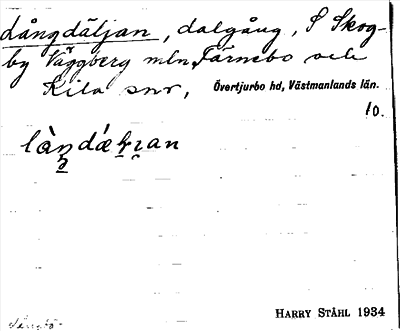 Långdäljan, dalgång, S Skog-
by Väggberg mln Färnebo och
Kila snr, Övertjurbo hd, Västmanlands län.
10.
HARRY STÅHL 1934